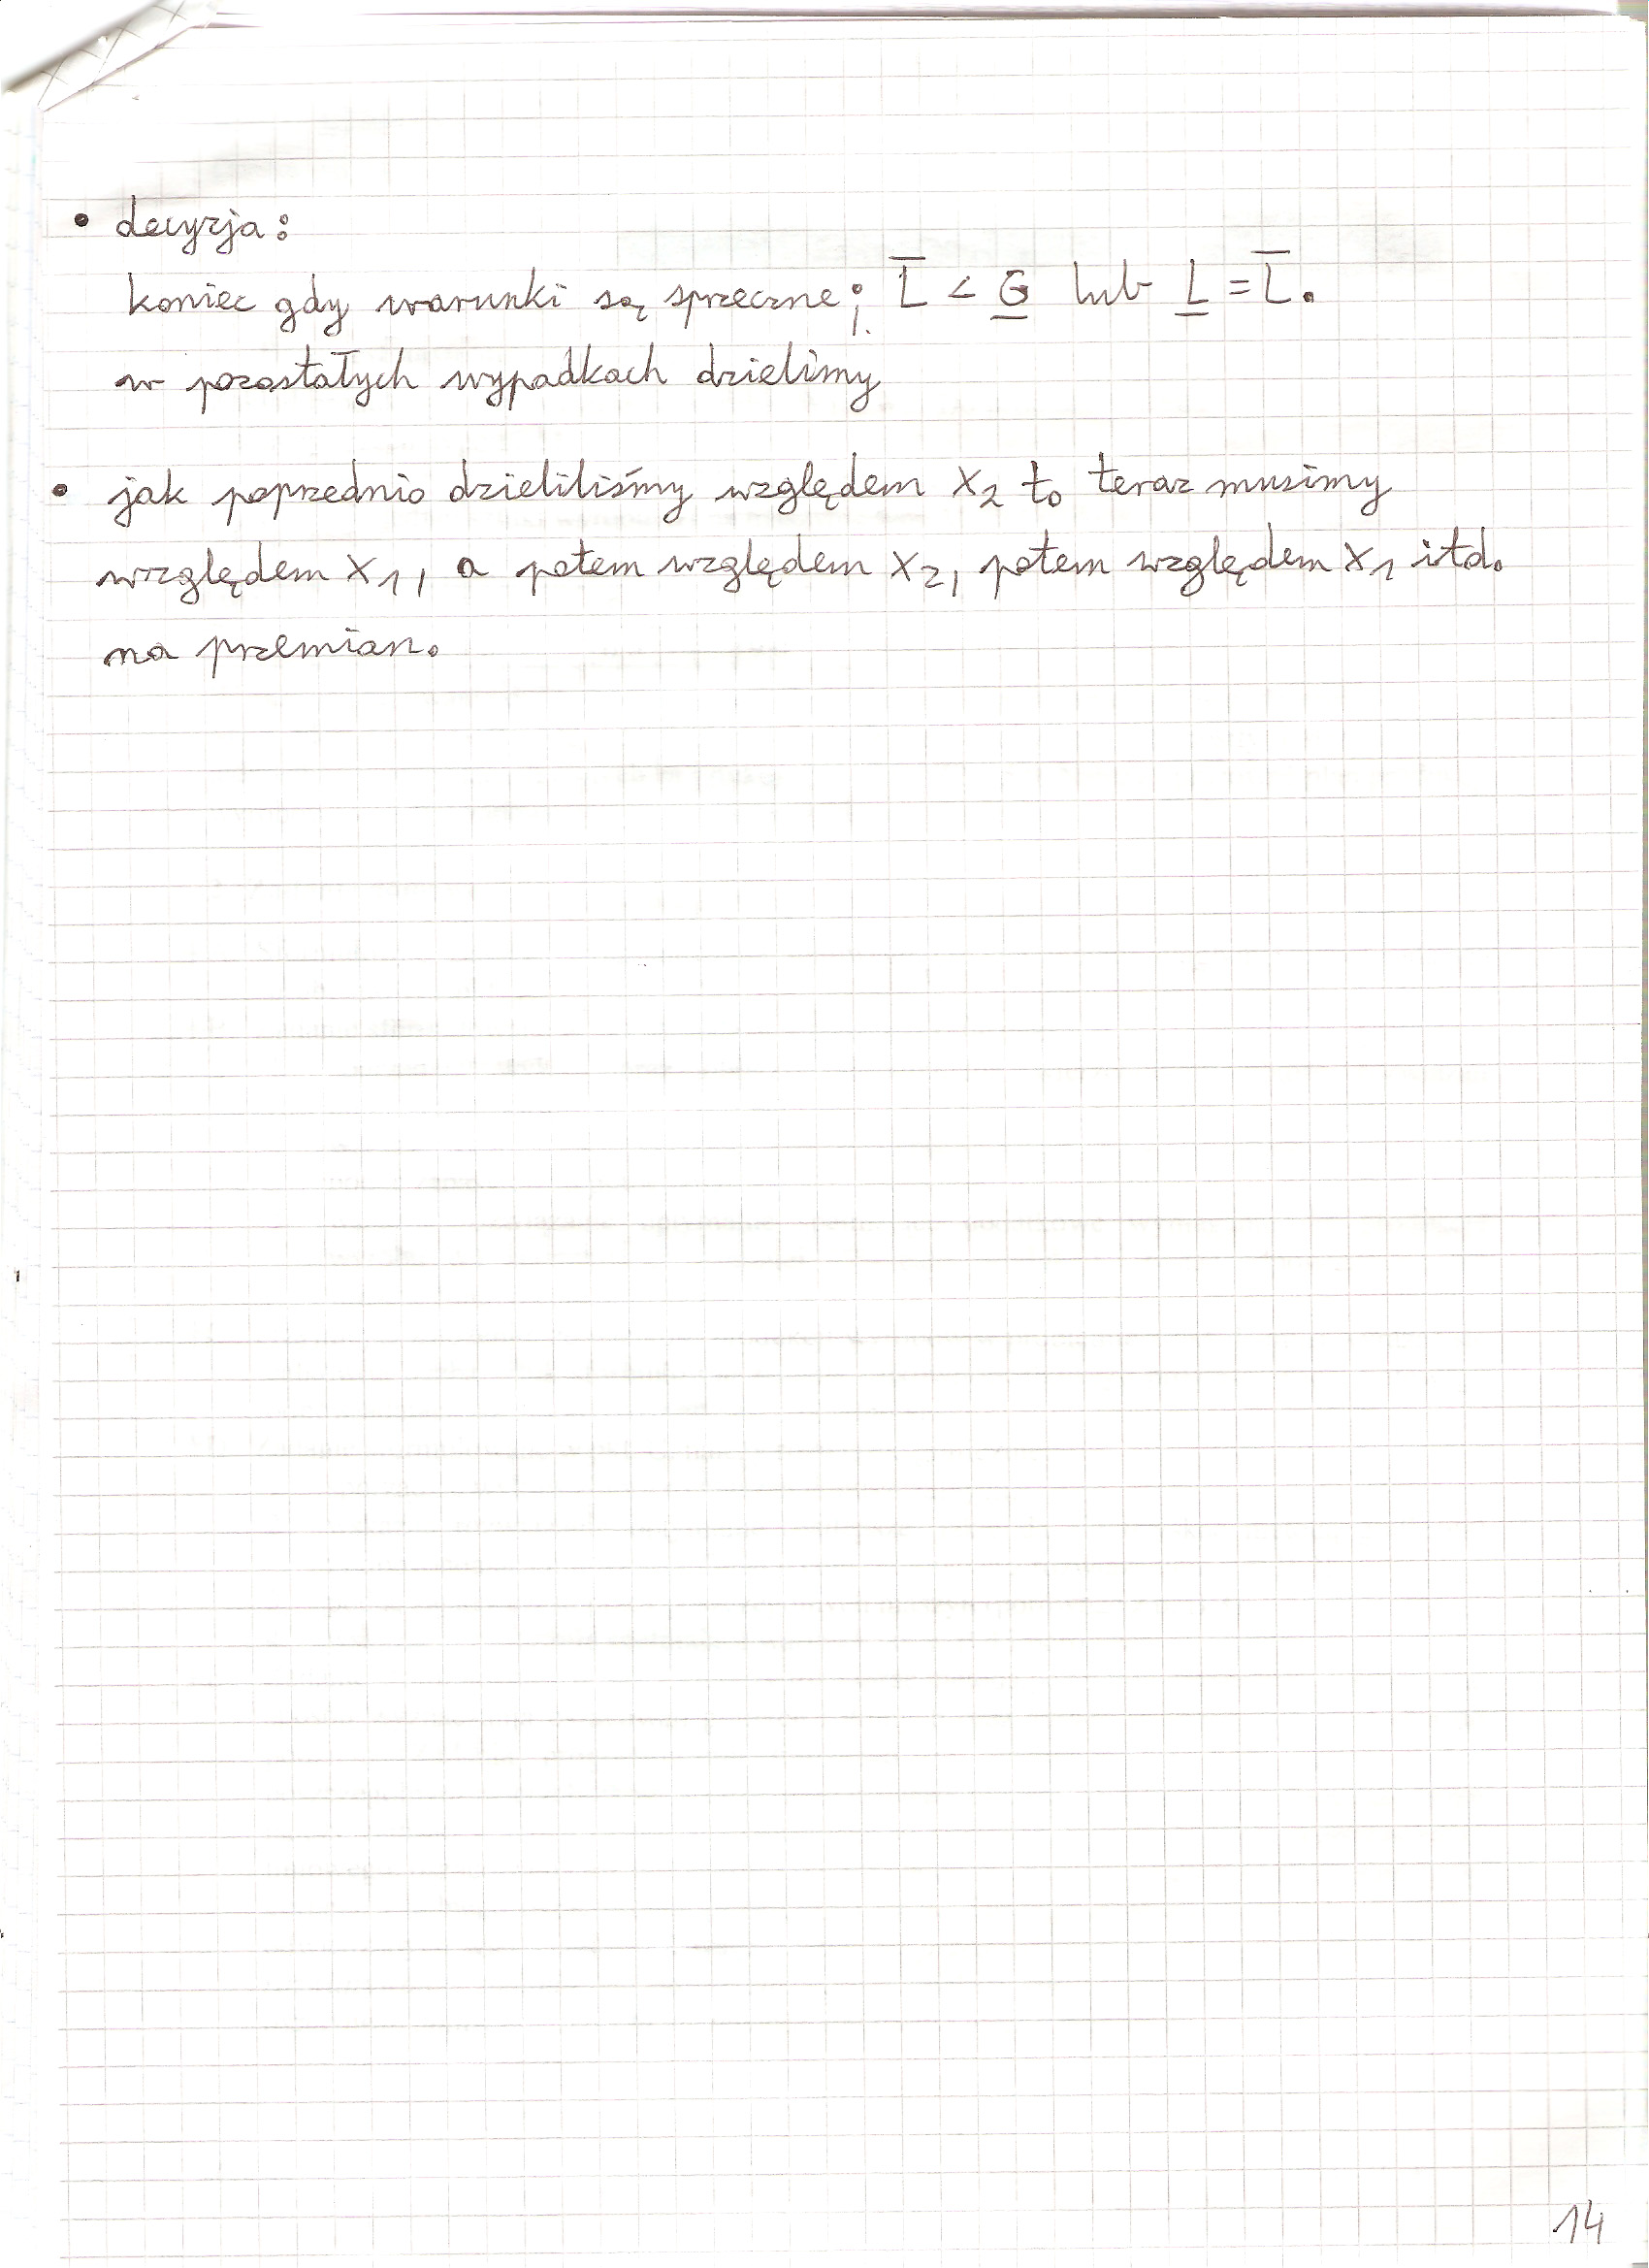 • decyzja:
koniec gdy warunki są sprzeczne; L̅ < G̲ lub L̲ = L̅.
w pozostałych wypadkach dzielimy
• jak poprzednio dzieliliśmy względem x₂ to teraz musimy
względem x₁, a potem względem x₂, potem względem x₁ itd.
na przemian.
14